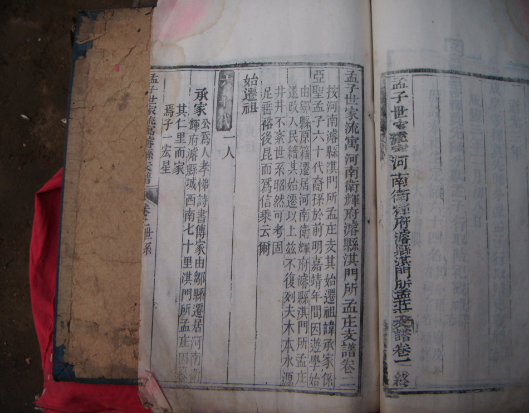 孟子世家流寓河南衛輝府濬縣淇門所孟莊支譜卷一終
孟子世家流寓河南衛輝府濬縣淇門所孟庄支譜卷二
按河南濬縣淇門所孟庄支其始遷祖諱承家係
亞聖孟子六十代裔孫於前明嘉靖年間因遊學始
由鄒縣原籍遷居河南衛輝府濬縣淇門所孟庄
是故人民續其始遷以上茲不復刻夫木本水源
井井不紊世系昭然可考固
足垂裕後昆而為信乘云爾
始遷祖
六十代
一人
承家
公為人孝悌詩書傳家由鄒縣遷居河南衛
輝府濬縣城西南七十里淇門所孟庄因
其仁里而家
焉子一宏星
孟子世家流寓濬縣支譜
卷二世系